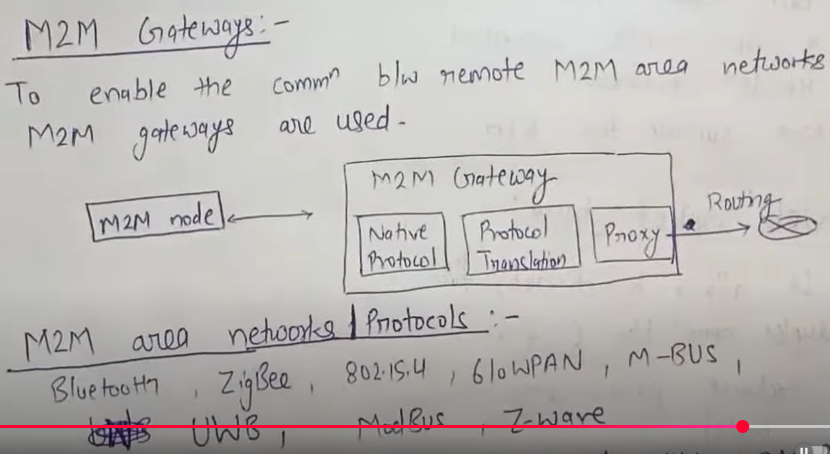 M2M Gateways:-
To enable the commⁿ b/w remote M2M area networks
M2M gateways are used.
M2M node
M2M Gateway
Native Protocol
Protocol Translation
Proxy
Routing
M2M area networks / Protocols :-
Bluetooth, ZigBee, 802.15.4, 6lowPAN, M-BUS,
UWB, ModBus, Z-ware